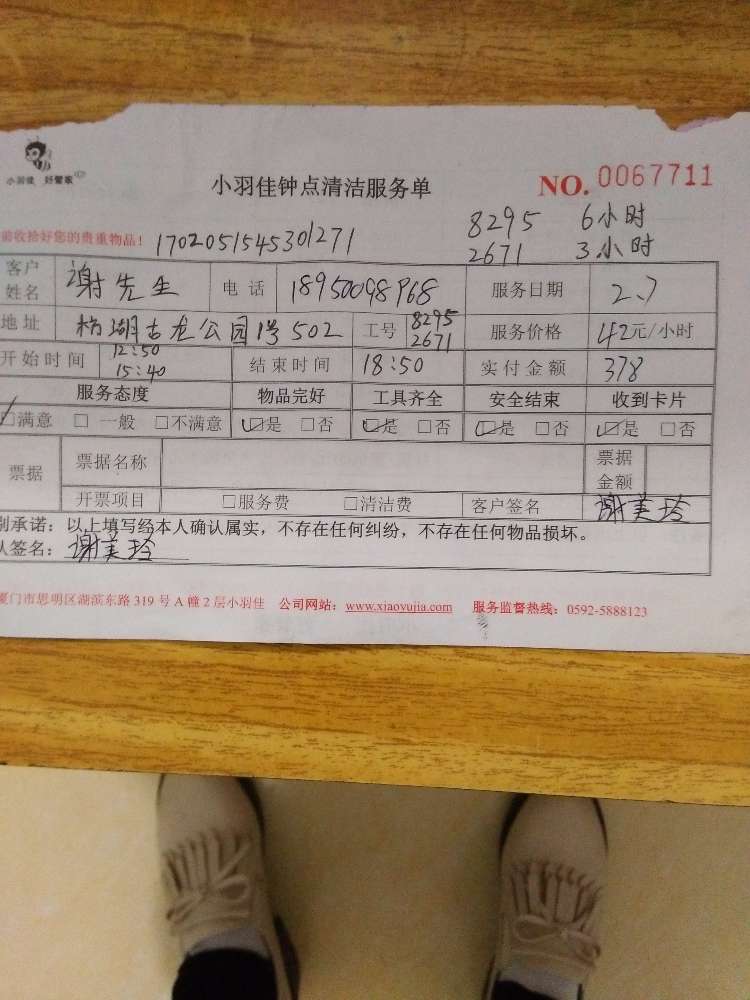 小羽佳 好管家
小羽佳钟点清洁服务单
NO. 0067711
前收拾好您的贵重物品!
1702051545301271
8295 6小时
2671 3小时
客户姓名 谢先生 电话 18950098968 服务日期 2.7
地址 杨湖古龙公园1号502 工号 8295 2671 服务价格 42元/小时
开始时间 12:50 15:40 结束时间 18:50 实付金额 378
服务态度 物品完好 工具齐全 安全结束 收到卡片
满意 □ 一般 □不满意 是 □否 是 □否 是 □否 是 □否
票据 票据名称 票据金额
开票项目 □服务费 □清洁费 客户签名 谢美玲
别承诺：以上填写经本人确认属实，不存在任何纠纷，不存在任何物品损坏。
人签名：谢美玲
厦门市思明区湖滨东路 319 号 A 幢 2 层小羽佳 公司网站：www.xiaoyujia.com 服务监督热线：0592-5888123